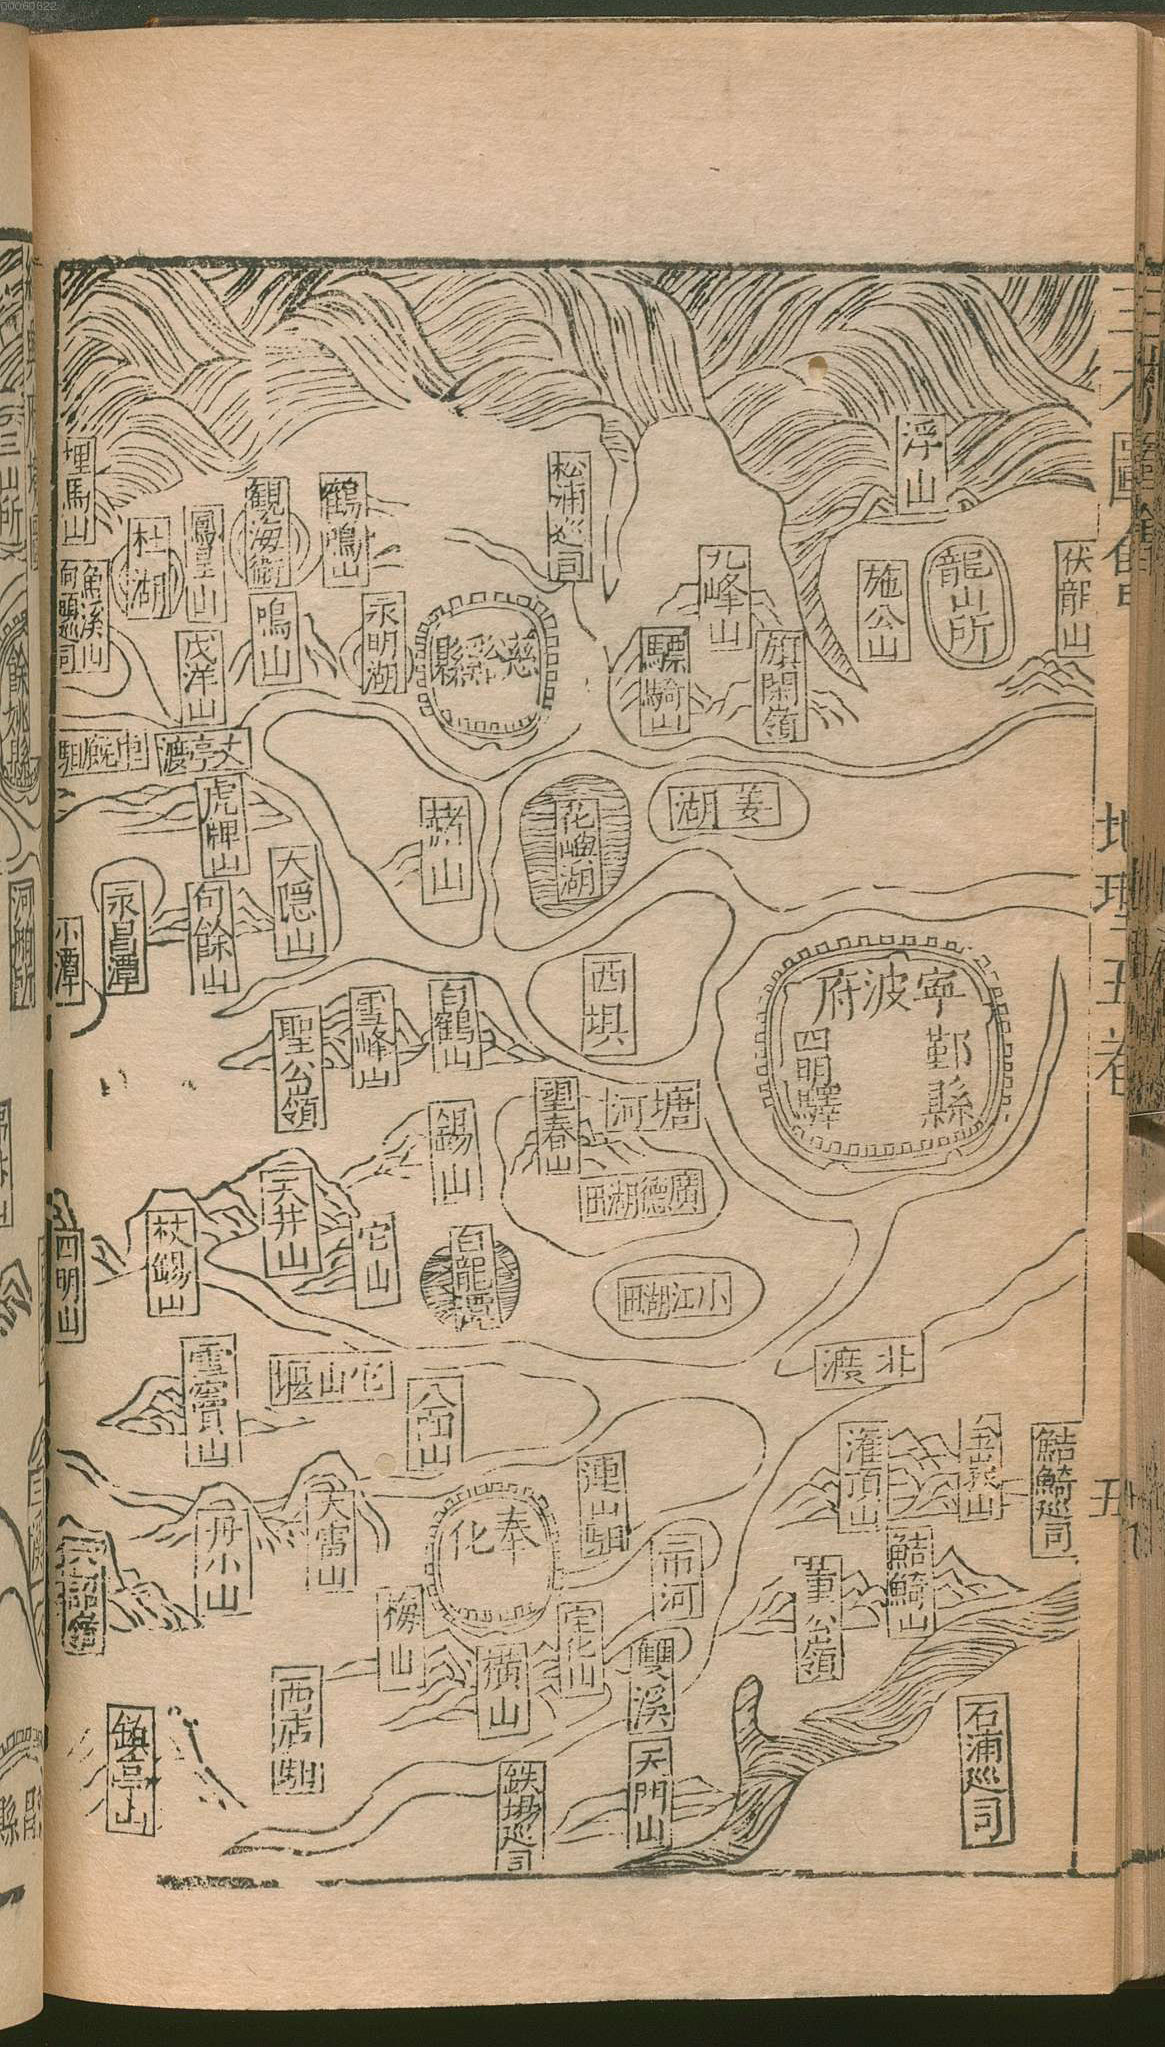 00060822
三才圖會
地理五卷
五
浮山
伏龍山
龍山所
施公山
九峰山
旗閑嶺
驃騎山
松浦巡司
慈谿縣
永明湖
鶴鳴山
觀海衛
鳴山
鳳皇山
戊洋山
杜湖
埋馬山
魚溪山
向頭司
丈亭渡
虎牌山
大隱山
句餘山
永昌潭
小潭
姜湖
花嶼湖
西垻
寧波府
鄞縣
四明驛
白鶴山
雪峰山
聖公嶺
塘河
望春山
廣德湖田
錫山
天井山
它山
白龍潭
小江湖田
杖錫山
四明山
北渡
它山堰
雪竇山
鮚鮚巡司
灌頂山
鮚鮚山
董公嶺
奉化
連山馹
市河
大雷山
丹小山
六詔嶺
梅山
橫山
雙溪
天門山
石浦巡司
西店馹
鉄場巡司
鎮亭山
餘姚縣
三山所